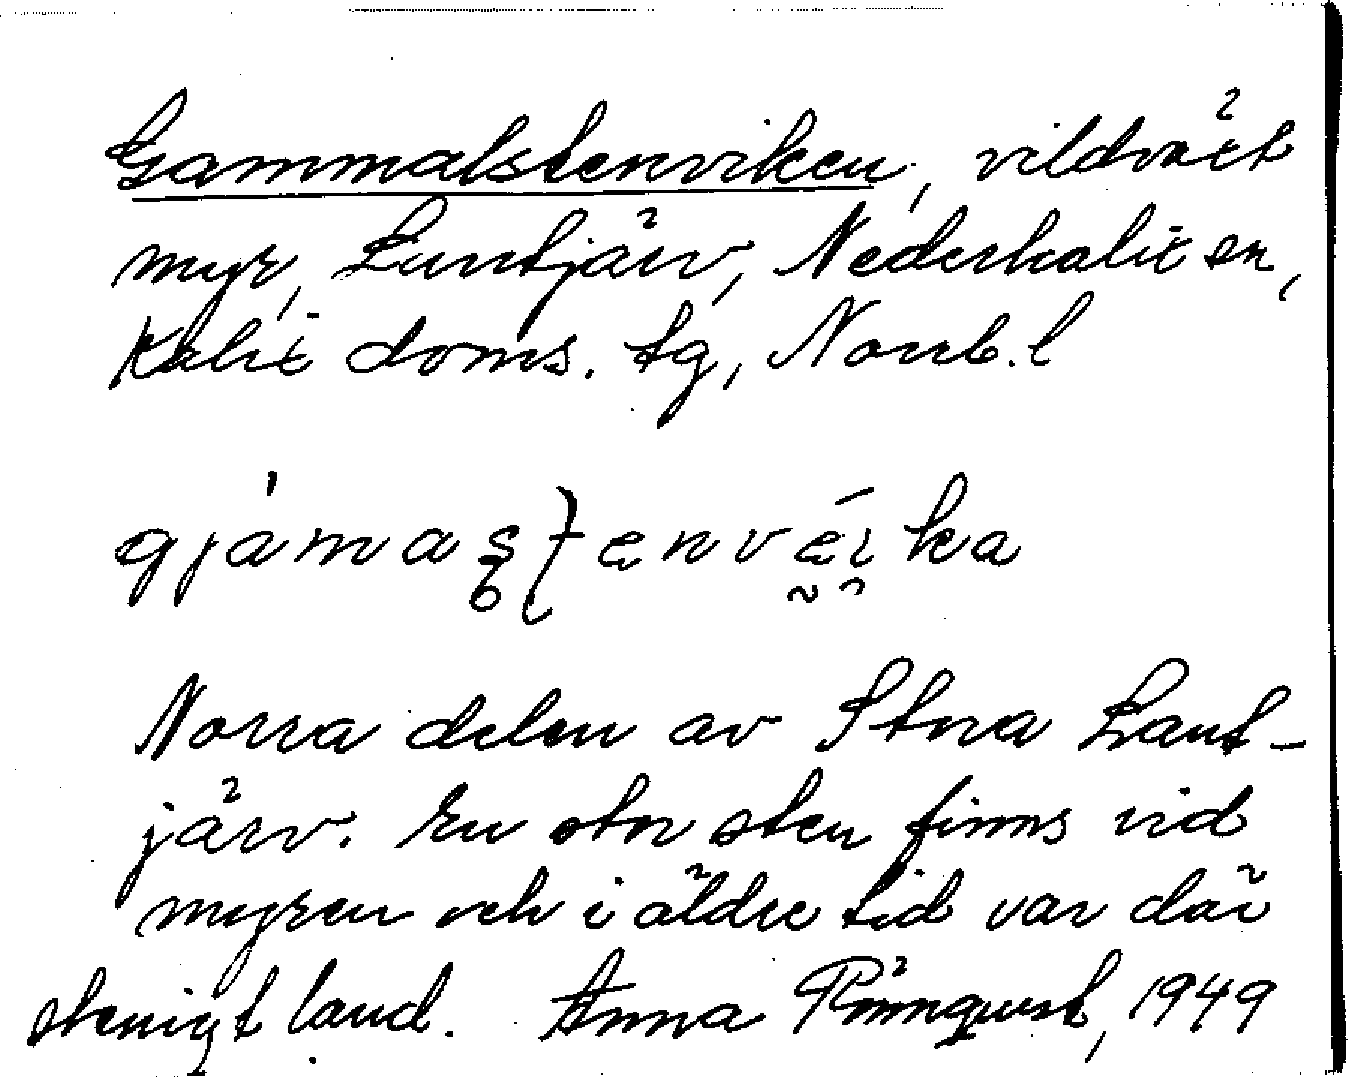 Gammalstenviken, vildväxt
myr, Lantjärv, Nederkalix sn,
Kalix doms. tg, Norrb. l
Norra delen av Stora Lant-
järv. En stor sten finns vid
myren och i äldre tid var där
stenigt land. Anna Rönnqvist, 1949